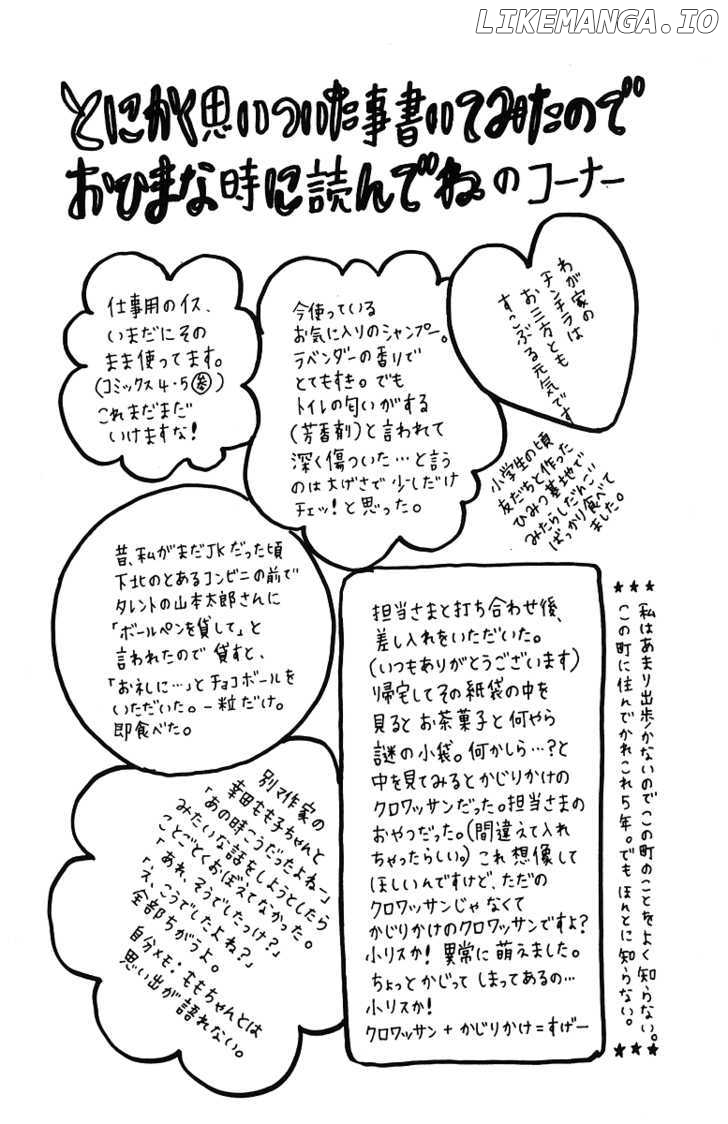 LIKEMANGA.IO
とにかく思いついた事書いてみたので
おひまな時に読んでね。のコーナー
仕事用のイス、
いまだにその
まま使ってます。
(コミックス4・5参)
これまだまだ
いけますな!
今使っている
お気に入りのシャンプー。
ラベンダーの香りで
とてもすき。でも
トイレの匂いがする
(芳香剤)と言われて
深く傷ついた…と言う
のは大げさで少しだけ
チェッ!と思った。
わが家の
チンチラは
お三方とも
すこぶる元気です
小学生の頃
友だちと作った
ひみつ基地で
みたらしだんご
ばっかり食べて
ました。
昔、私がまだJKだった頃
下北のとあるコンビニの前で
タレントの山本太郎さんに
「ボールペンを貸して」と
言われたので貸すと、
「お礼に…」とチョコボールを
いただいた。一粒だけ。
即食べた。
担当さまと打ち合わせ後、
差し入れをいただいた。
(いつもありがとうございます)
帰宅してその紙袋の中を
見るとお茶菓子と何やら
謎の小袋。何かしら…?と
中を見てみるとかじりかけの
クロワッサンだった。担当さまの
おやつだった。(間違えて入れ
ちゃったらしい。)これ想像して
ほしいんですけど、ただの
クロワッサンじゃなくて
かじりかけのクロワッサンですよ?
小リスか!異常に萌えました。
ちょっとかじってしまってあるの…
小リスか!
クロワッサン+かじりかけ=すげー
★★★
私はあまり出歩かないのでこの町のことをよく知らない。
この町に住んでかれこれ5年。でもほんとに知らない。
★★★
別マ作家の
幸田もも子ちゃんと
「あの時こうだったよねー」
みたいな話をしようとしたら
ことごとくおぼえてなかった。
「あれ、そうでしたっけ?」
「え、こうでしたよね?」
全部ちがうよ。
自分メモ:ももちゃんとは
思い出が語れない。